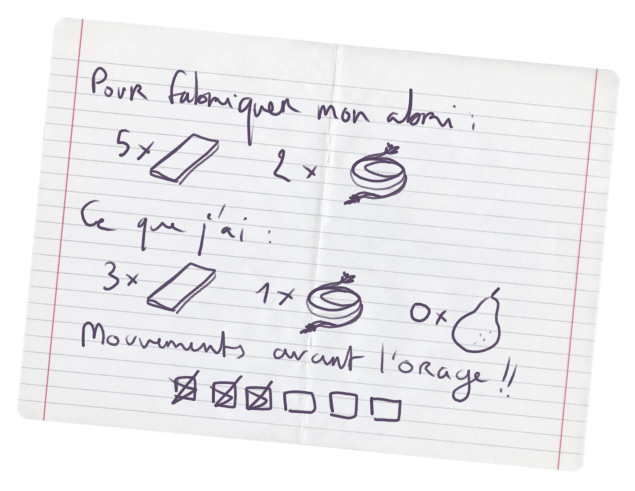 Pour fabriquer mon abri :
5x 2x
Ce que j'ai :
3x 1x 0x
Mouvements avant l'orage !!